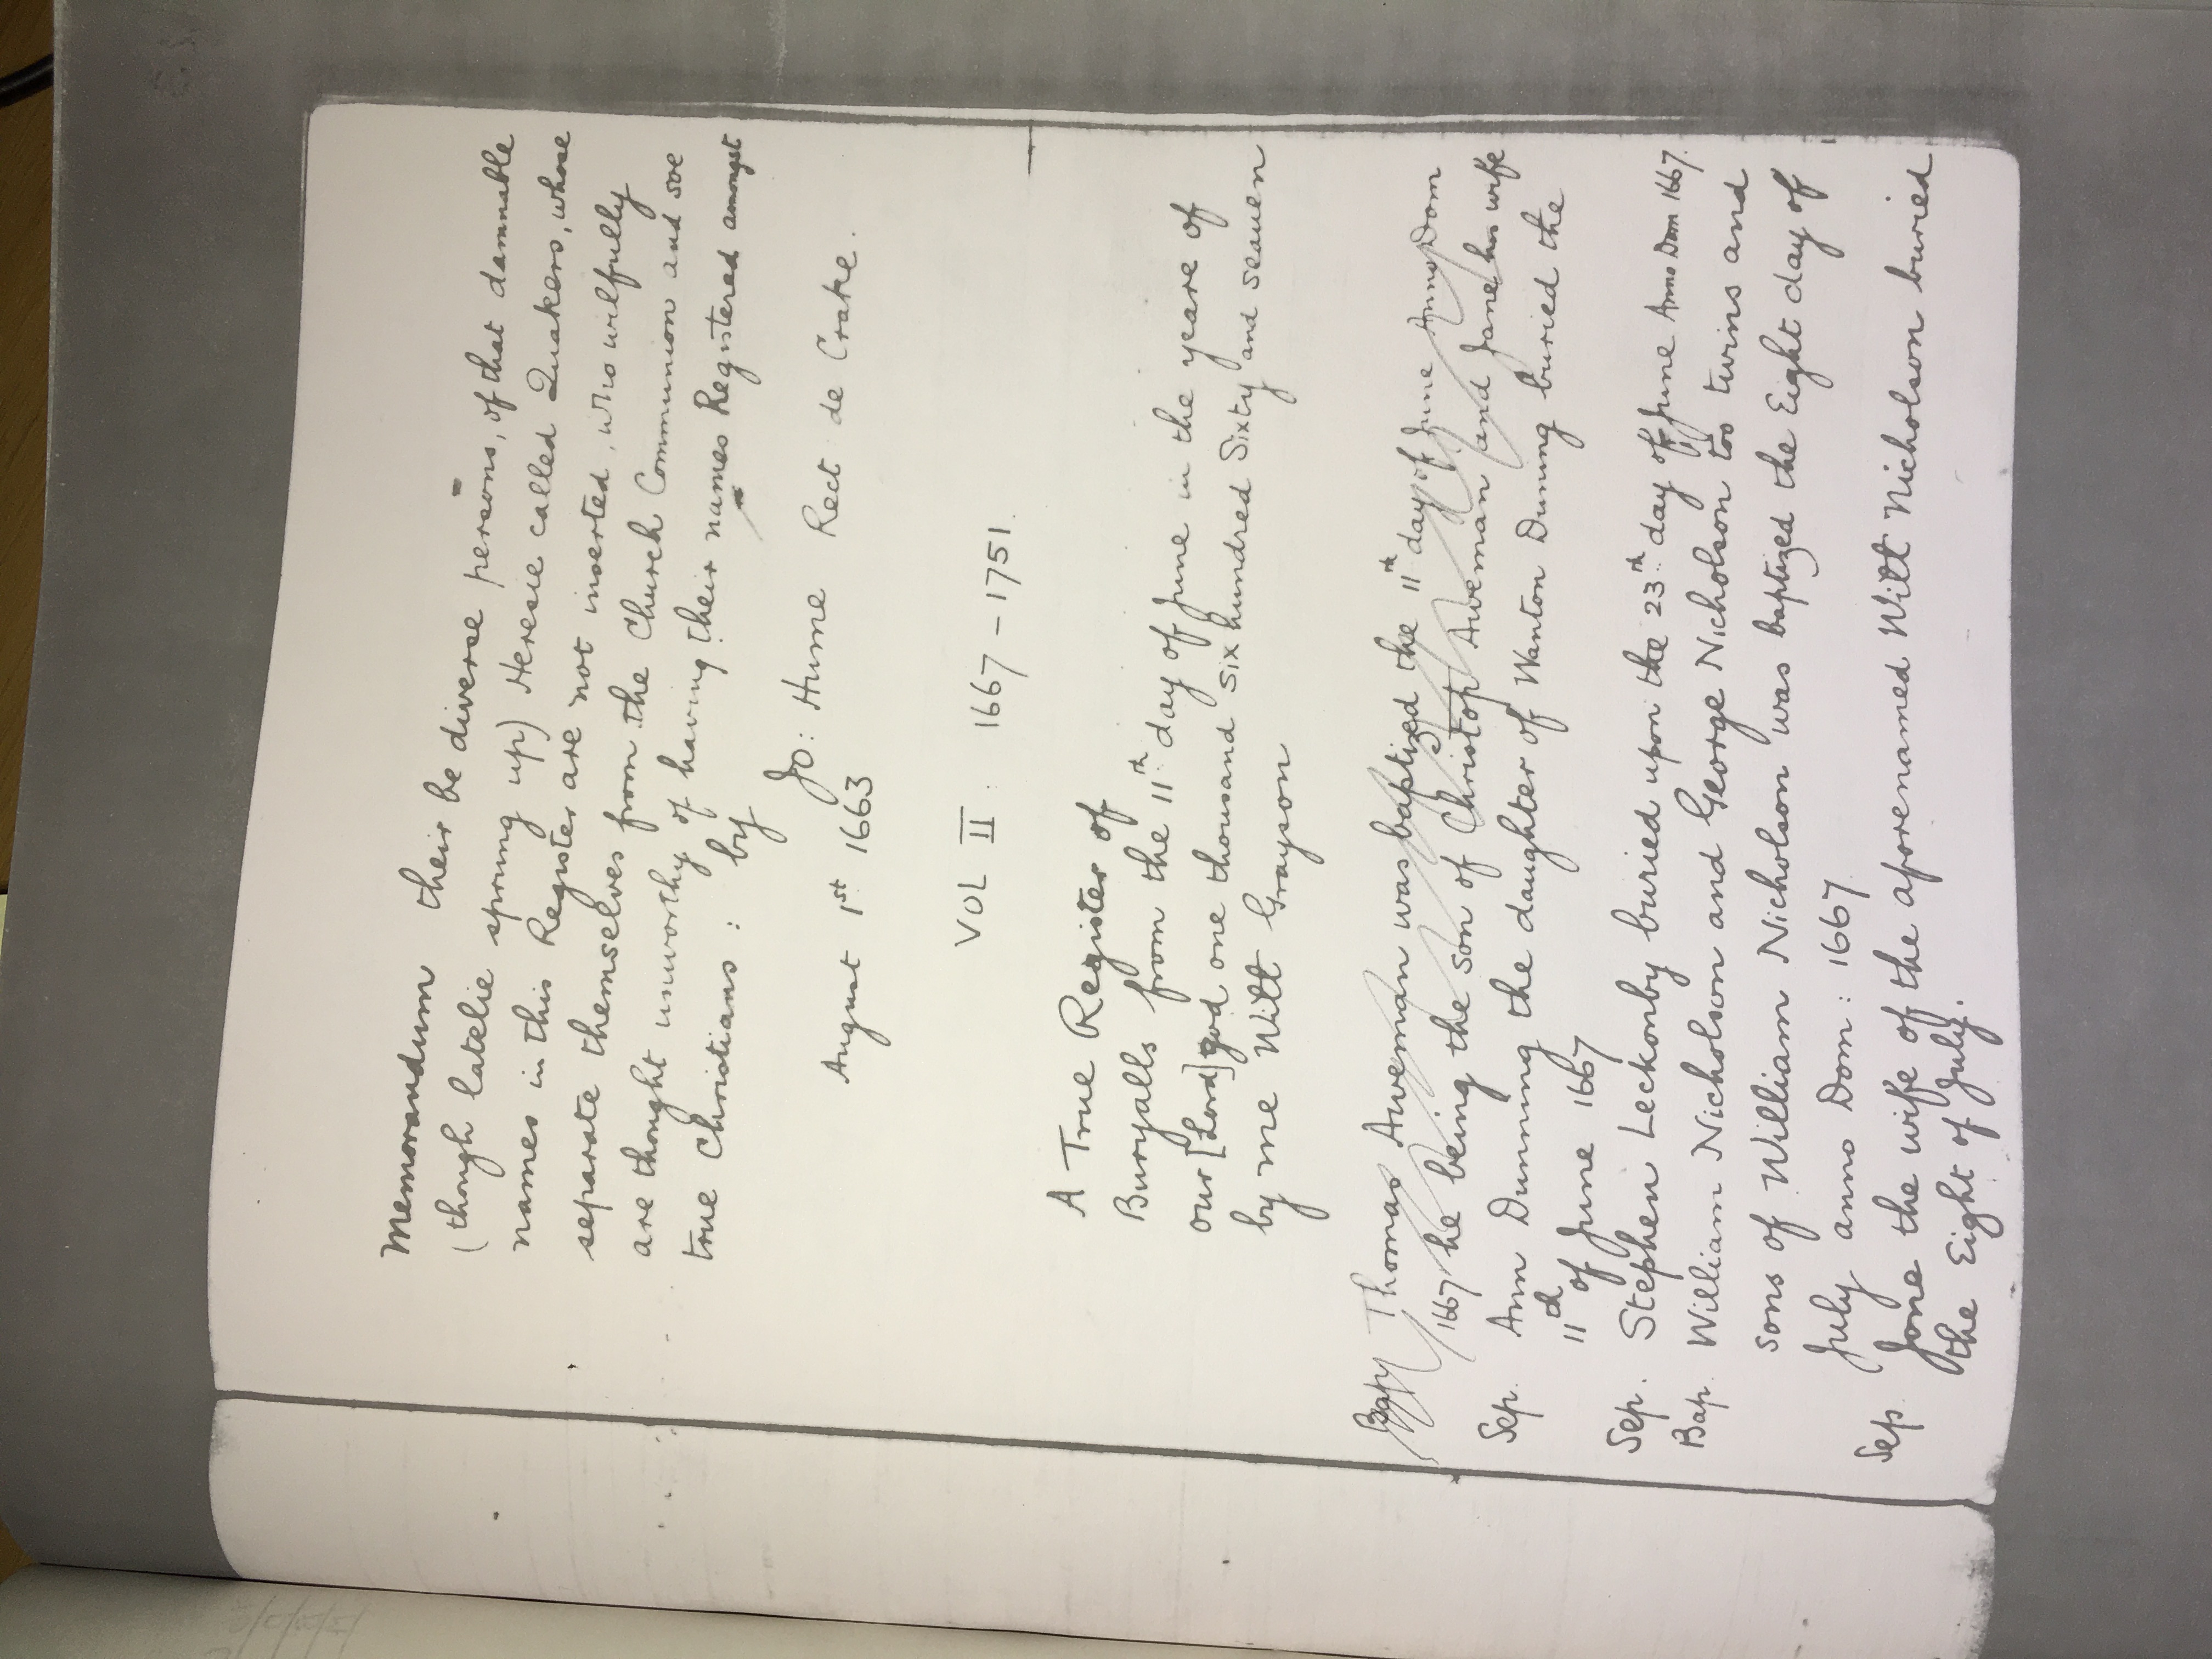 Memorandum their be diverse persons, of that damnable
(though latelie sprung up) Heresie called Quakers, whose
names in this Register are not inserted, who wilfully
separate themselves from the Church Communion and soe
are thought unworthy of having their names Registered amongst
true Christians : by
Jo: Hume Rect de Crake.
August 1st 1663
VOL II : 1667 - 1751.
A True Register of
Buryalls from the 11th day of June in the yeare of
our [Lord] god one thousand six hundred Sixty and seauen
by me Witt Grayson
Bap Thomas Aweman was baptized the 11th day of June Anno Dom
1667 he being the son of Christop Aweman and Jane his wife
Sep. Ann Dunning the daughter of Wanton Duning buried the
11th of June 1667
Sep. Stephen Leckonby buried upon the 23th day of June Anno Dom 1667.
Bap. William Nicholson and George Nicholson too twins and
sons of William Nicholson was baptized the Eight day of
July anno Dom : 1667
Sep. Jane the wife of the aforenamed Witt Nicholson buried
the Eight of July.